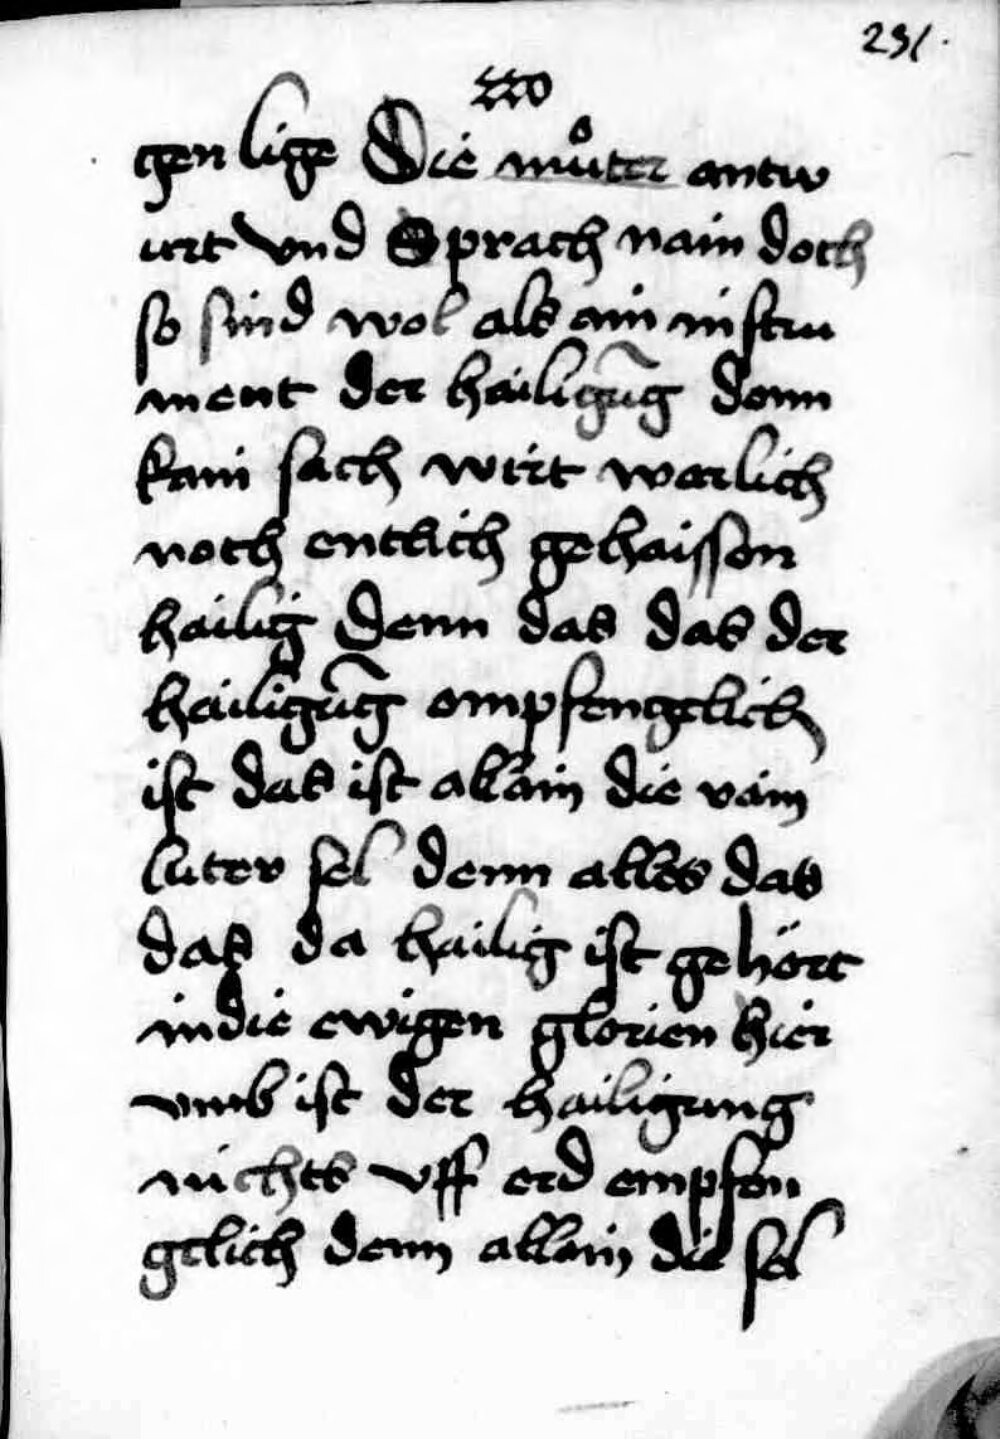 231
gen lige Die muͦter antw
urt vnd Sprach nain doch
so sind wol als ain instru
ment der hailigūg denn
kain sach wirt warlich
noch entlich gehaissen
hailig Denn das das der
hailigūg empfengelich
ist das ist allain die rain
luter sel denn alles das
das da hailig ist gehört
in die ewigen glorien hier
vmb ist der hailigung
nichts vff erd empfen
gelich denn allain die sel